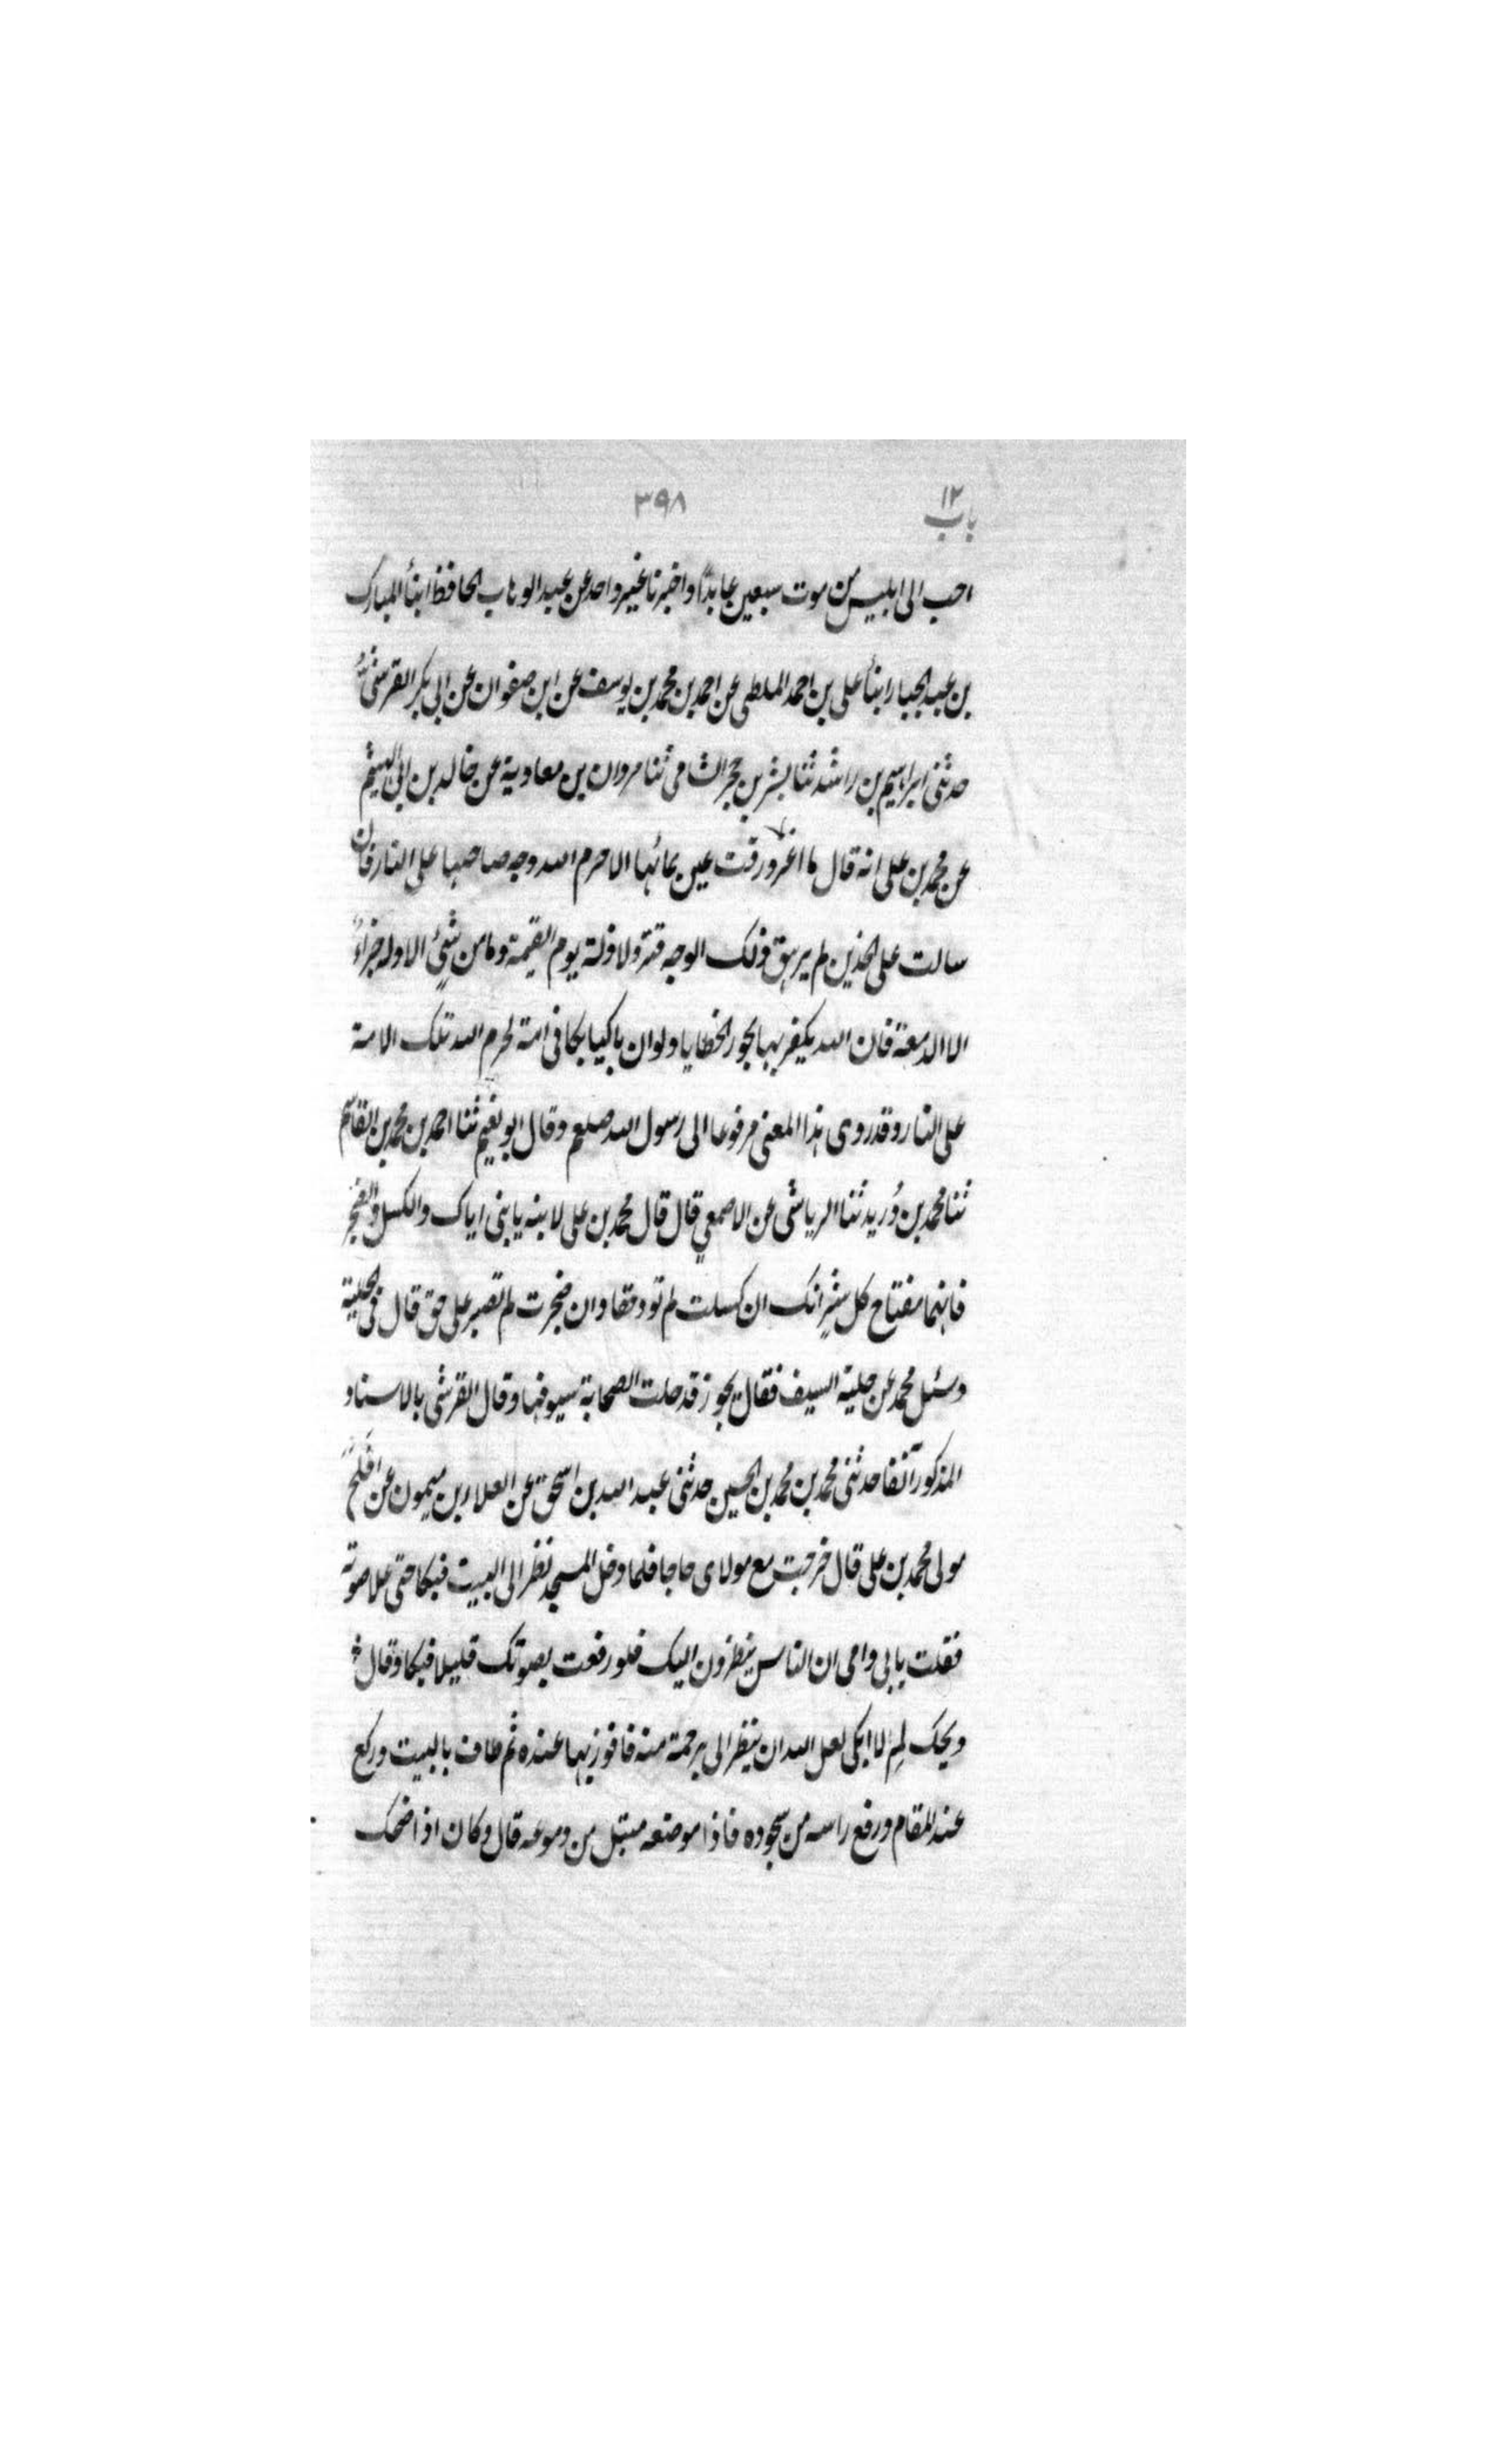 باب ١٢
٣٩٨
احب الى ابليس من موت سبعين عابدًا واخبرنا غير واحد عن عبد الوهاب الحافظ انبأ المبارك
بن عبد الجبار انبأ على بن احمد الملطى عن احمد بن محمد بن يوسف عن ابن صفوان عن ابى بكر القرشى
حدثنى ابراهيم بن راشد ثنا بشر بن حجر الشامى ثنا مروان بن معاوية عن خالد بن ابى الهيثم
عن محمد بن على انه قال ما اغرورقت عين بمائها الا حرم الله وجه صاحبها على النار فان
سالت على الخدين لم يرهق ذلك الوجه قتر ولا ذلة يوم القيمة وما من شئ الا وله جزاءٌ
الا الدمعة فان الله يكفر بها بحور الخطايا ولو ان باكيا بكا فى امة لحرم الله تلك الامة
على النار وقد روى هذا المعنى مرفوعا الى رسول الله صلعم وقال ابو نعيم ثنا احمد بن محمد بن القاسم
ثنا محمد بن دُريد ثنا الرياشى عن الاصمعي قال قال محمد بن على لابنه يا بنى اياك والكسل والضجر
فانهما مفتاح كل شرٍ انك ان كسلت لم تود حقا وان ضجرت لم تصبر على حق قال فى الحلية
وسئل محمد عن حلية السيف فقال يجوز قد حلت الصحابة سيوفها وقال القرشى بالاسناد
المذكور آنفا حدثنى محمد بن محمد بن الحسين حدثنى عبد الله بن اسحق عن العلاء بن ميمون عن افلح
مولى محمد بن على قال خرجت مع مولاى حاجا فلما دخل المسجد نظر الى البيت فبكا حتى علا صوته
فقلت بابى وامى ان الناس ينظرون اليك فلو رفعت بصوتك قليلا فبكا وقال
ويحك لِمِ لا ابكى لعل الله ان ينظر الى برحمة منه فافوز بها عنده ثم طاف بالبيت وركع
عند المقام ورفع راسه من سجوده فاذا موضعه مبتل من دموعه قال وكان اذا ضحك